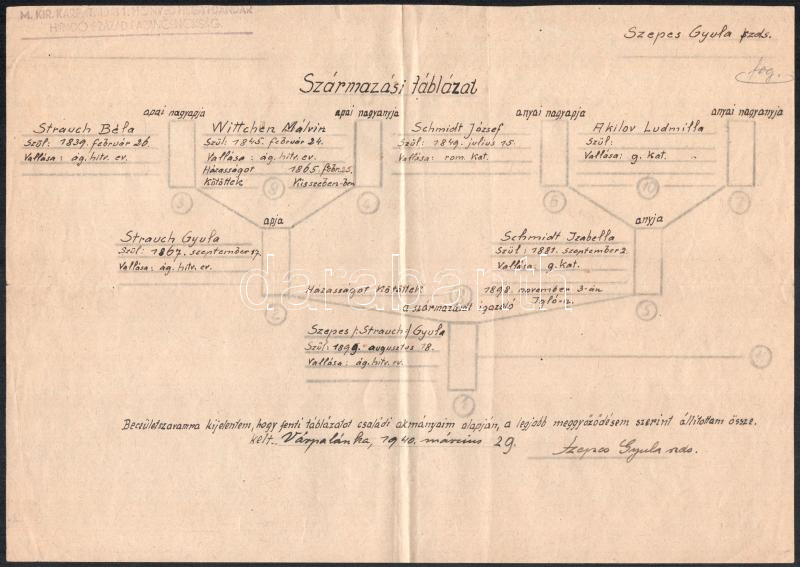 M. KIR. KÁRPÁTALJAI 1. HONVÉD
HIRADÓ SZÁZAD PARANCSNOKSÁG.
Szepes Gyula szds.
Származási táblázat
apai nagyapja
apai nagyanyja
anyai nagyapja
anyai nagyanyja
Strauch Béla
Szül: 1839. február 26.
Vallása: ág. hitv. ev.
Wittchen Málvin
Szül: 1845. február 24.
Vallása: ág. hitv. ev.
Házasságot 1865. febr. 25.
Kötöttek Kisszeben-ben
Schmidt József
Szül: 1849. julius 15.
Vallása: rom. kat.
Akilov Ludmilla
Szül:
Vallása: g. kat.
3
8
4
6
10
7
apja
anyja
Strauch Gyula
Szül: 1867. szeptember 17.
Vallása: ág. hitv. ev.
Schmidt Izabella
Szül: 1881. szeptember 2.
Vallása: g. kat.
Házasságot Kötöttek 1898. november 3-án
Iglón.
2
5
a származását igazoló
Szepes /:Strauch:/ Gyula
Szül: 1899. augusztus 18.
Vallása: ág. hitv. ev.
1
Becsületszavamra kijelentem, hogy fenti táblázatot családi okmányaim alapján, a legjobb meggyőződésem szerint állitottam össze.
kelt.. Várpalánka, 1940. március 29.
Szepes Gyula szds.
darabanth